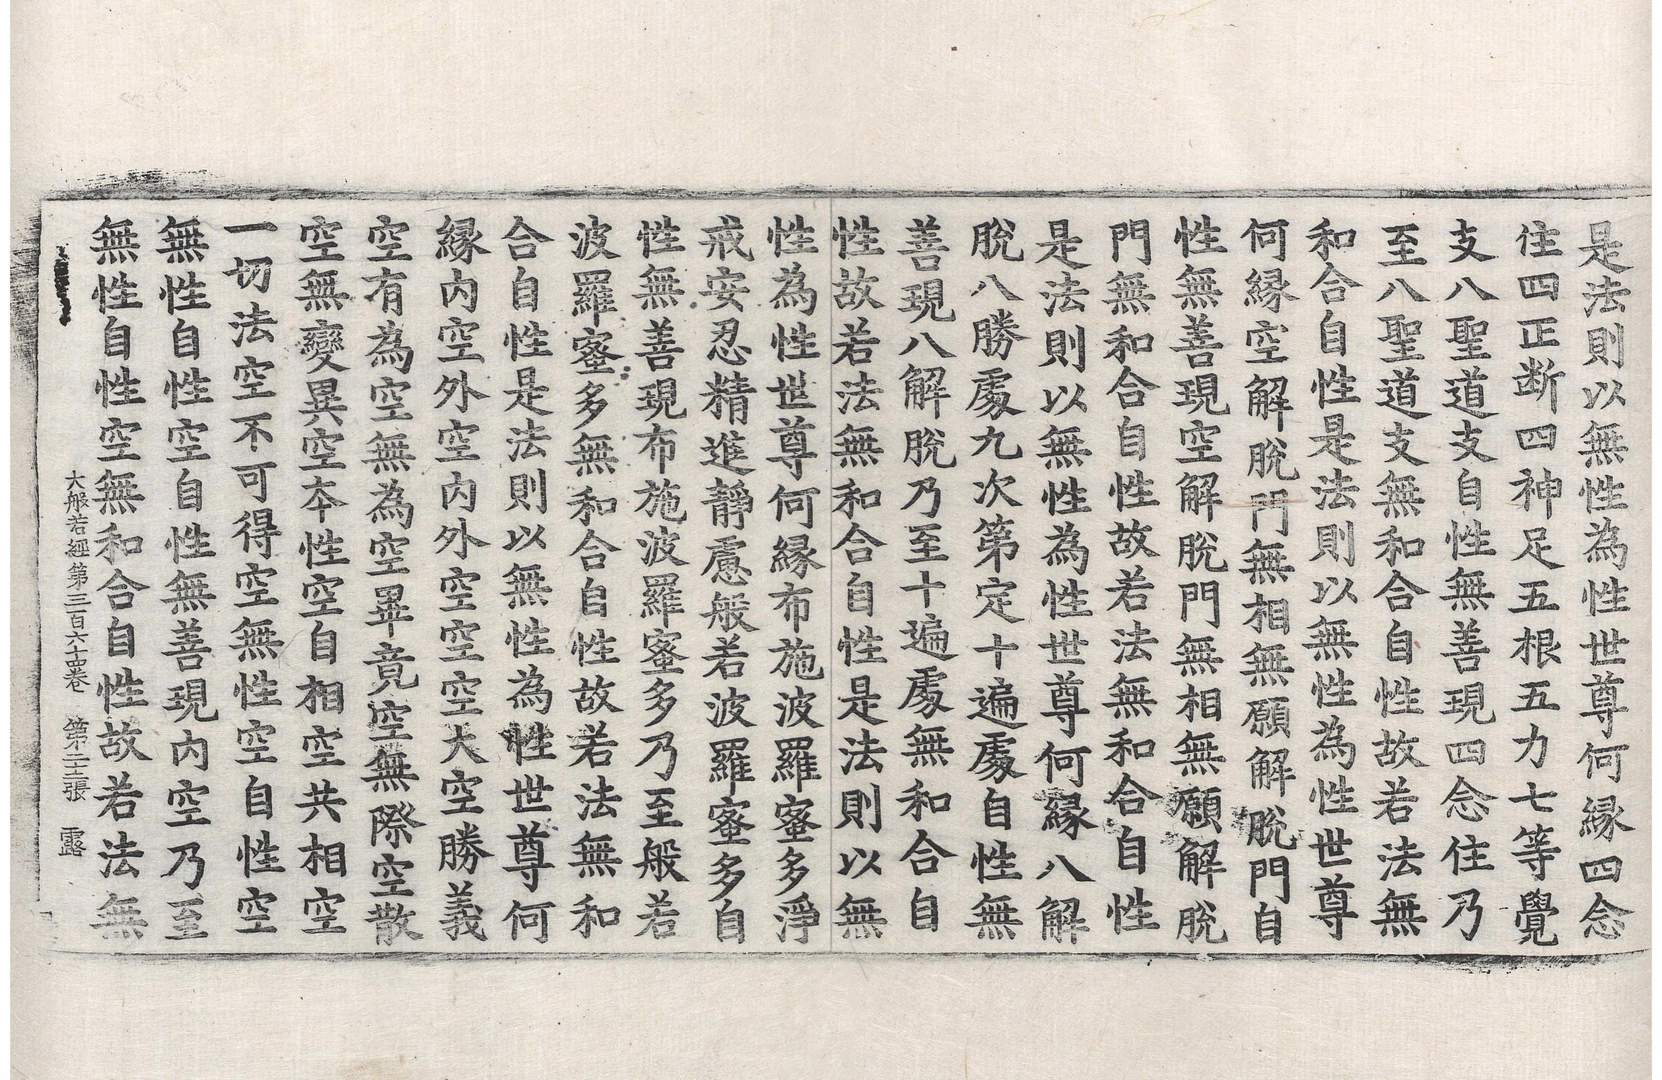 是法則以無性為性世尊何縁四念
住四正断四神足五根五力七等覺
支八聖道支自性無善現四念住乃
至八聖道支無和合自性故若法無
和合自性是法則以無性為性世尊
何縁空解脫門無相無願解脫門自
性無善現空解脫門無相無願解脫
門無和合自性故若法無和合自性
是法則以無性為性世尊何縁八解
脫八勝處九次第定十遍處自性無
善現八解脫乃至十遍處無和合自
性故若法無和合自性是法則以無
性為性世尊何縁布施波羅蜜多淨
戒安忍精進靜慮般若波羅蜜多自
性無善現布施波羅蜜多乃至般若
波羅蜜多無和合自性故若法無和
合自性是法則以無性為性世尊何
縁內空外空內外空空空大空勝義
空有為空無為空畢竟空無際空散
空無變異空本性空自相空共相空
一切法空不可得空無性空自性空
無性自性空自性無善現內空乃至
無性自性空無和合自性故若法無
大般若經第三百六十四卷 第十二張 露